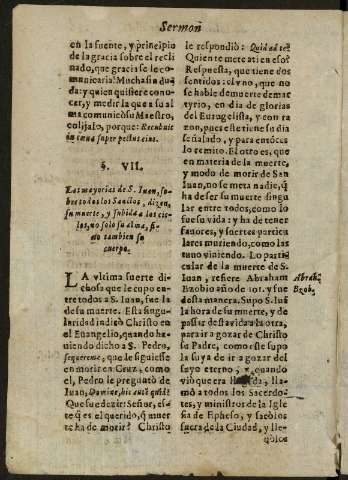 Sermon
en la fuente, y principio
de la gracia sobre el recli
nado, que gracia se le co
municaria? Mucha sin du
da: y quien quisiere cono-
cer, y medir la que a su al
ma comunicò su Maestro,
colijalo, porque: Recubuit
in cœna super pectus eius.
§. VII.
Las mayorias de S. Iuan, so-
bre todos los Sanctos, dizen,
su muerte, y subida a los cie-
los, no solo su alma, si-
no tambien su
cuerpo.
LA vltima suerte di-
chosa que le cupo en
tre todos a S. Iuan, fue la
de su muerte. Esta singu-
laridad indicò Christo en
el Euangelio, quando ha-
uiendo dicho a S. Pedro,
sequereme, que le siguiesse
en morir en Cruz, como
el, Pedro le preguntò de
Iuan, Domine, hic autē quid?
Que sue dezir: Señor, es-
te q̃ es el querido, q̃ muer
te ha de morir? Christo
le respondió: Quid ad te?
Quien te mete ati en eso?
Respuesta, que tiene dos
sentidos: el vno, que no
se hable de muerte de mar
tyrio, en dia de glorias
del Euangelista, y con ra
zon, pues este tiene su dia
señalado, y para entóces
lo remito. El otro es, que
en materia de la muerte,
y modo de morir de San
Iuan, no se meta nadie, q̃
ha de ser su muerte singu
lar entre todos, como lo
fue su vida: y ha de tener
fauores, y suertes particu
lares muriendo, como las
tuuo viuiendo. Lo parti-
cular de la muerte de S.
Iuan, refiere Abraham
Bzobio año de 101. y fue
desta manera. Supo S. Iuã
la hora de su muerte, y de
passar desta vida a la otra,
para ir a gozar de Christo
su Padre, como este supo
la suya de ir a gozar del
suyo eterno; y quando
vio que era llegada, lla-
mò a todos los Sacerdo-
tes, y ministros de la Igle
sia de Epheso, y sacòlos
fuera de la Ciudad, y lle-
Abrahã
Bzob.
uòlos